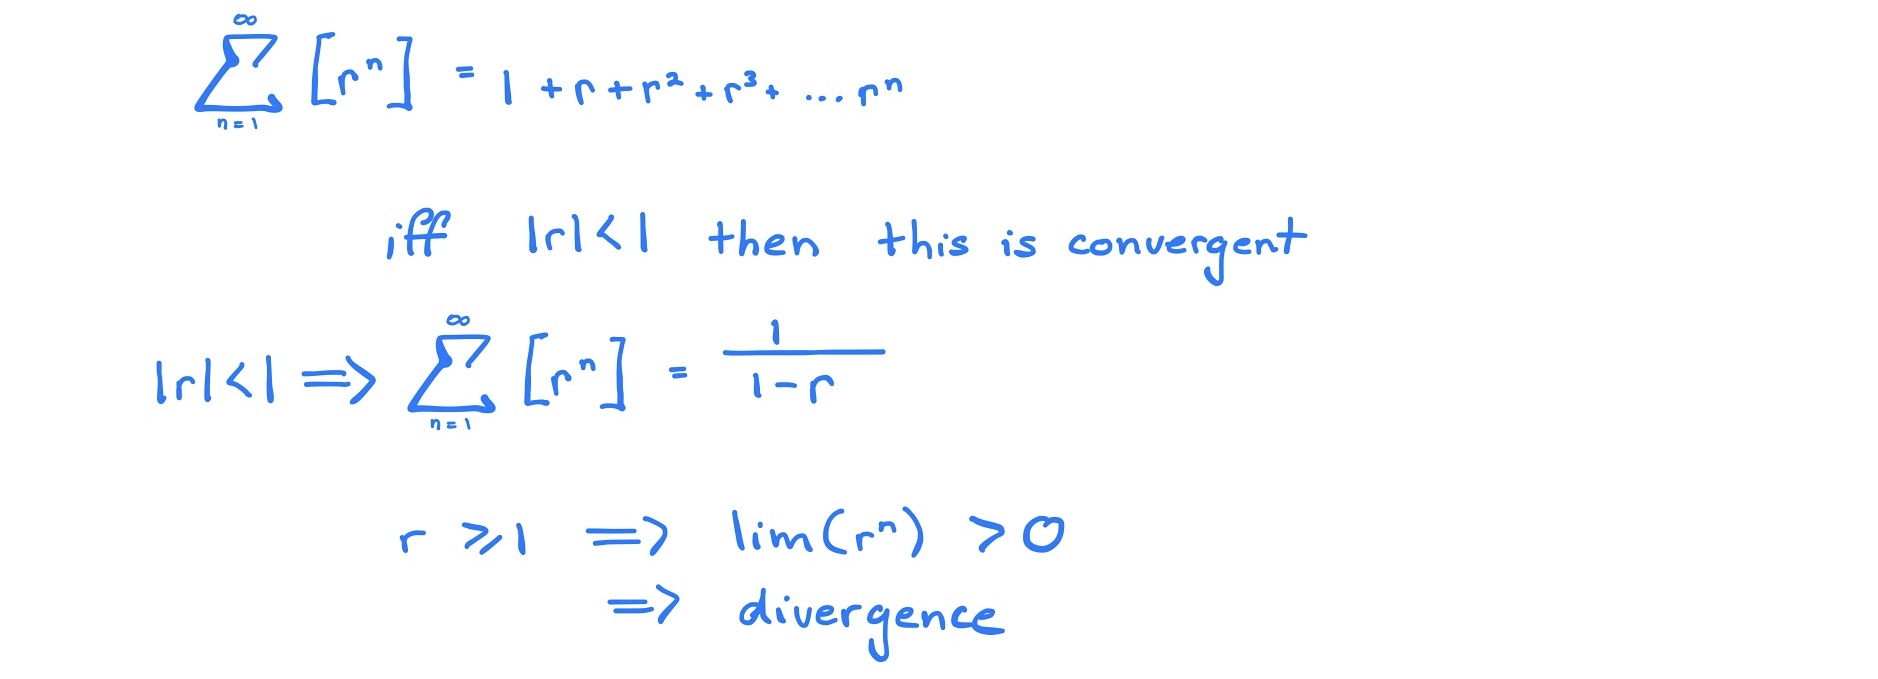 ∞∑n=1 [rⁿ] = 1 + r + r² + r³ + ... rⁿ
iff |r| < 1 then this is convergent
|r| < 1 ⟹ ∞∑n=1 [rⁿ] = 1/(1-r)
r ⩾ 1 ⟹ lim(rⁿ) > 0
⟹ divergence